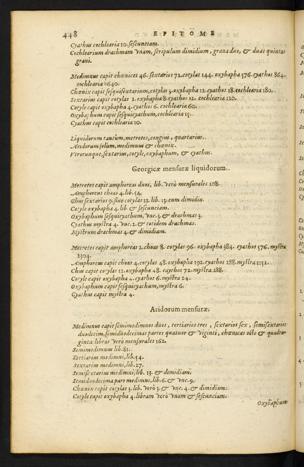 448 EPITOME
Cyathus cochlearia 10. sescunciam.
Cochlearium drachmam unam, scripulum dimidium, grana duo, & duas quintas
grani.
Medimnus capit choenices 48. sextarios 72. cotylas 144. oxybapha 576. cyathos 864.
cochlearia 8640.
Choenix capit sesquisextarium, cotylas 3. oxybapha 12. cyathos 18. cochlearia 180.
Sextarius capit cotylas 2. oxybapha 8. cyathos 12. cochlearia 120.
Cotyle capit oxybapha 4. cyathos 6. cochlearia 60.
Oxybaphum capit sesquicyathum, cochlearia 15.
Cyathus capit cochlearia 10.
Liquidorum tantum, metretes, congius, quartarius.
Aridorum solum, medimnus & choenix.
Utrorunque, sextarius, cotyle, oxybaphum, & cyathus.
Georgicæ mensuræ liquidorum.
Metretes capit amphoreas duas, lib. verò mensurales 188.
Amphoreus choas 4. lib.
Chus sextarios 9. sive cotylas 12. lib. 13. cum dimidia.
Cotyle oxybapha 4. lib. & sescunciam.
Oxybaphum sesquicyathum, unc. 3. & drachmas 3.
Cyathus mystra 4. unc. 2. & totidem drachmas.
Mystrum drachmas 4. & dimidiam.
Metretes capit amphoreas 2. choas 8. cotylas 96. oxybapha 384. cyathos 576. mystra
2304.
Amphoreus capit choas 4. cotylas 48. oxybapha 192. cyathos 288. mystra 1152.
Chus capit cotylas 12. oxybapha 48. cyathos 72. mystra 288.
Cotyle capit oxybapha 4. cyathos 6. mystra 24.
Oxybaphum capit sesquicyathum, mystra 6.
Cyathus capit mystra 4.
Aridorum mensuræ.
Medimnus capit semimedimnos duos, tertiarios tres, sextarios sex, semisextarios
duodecim, semiduodecimas partes quatuor & viginti, choenicas octo & quadra-
ginta: libras verò mensurales 162.
Semimedimnus lib. 81.
Tertiarius medimni, lib. 54.
Sextarius medimni, lib. 27.
Semisextarius medimni, lib. 13. & dimidiam.
Semiduodecima pars medimni, lib. 6. & unc. 9.
Choenix capit cotylas 3. lib. verò 3. & unc. 4. & dimidiam.
Cotyle capit oxybapha 4. libram verò unam & sescunciam.
Oxybaphum